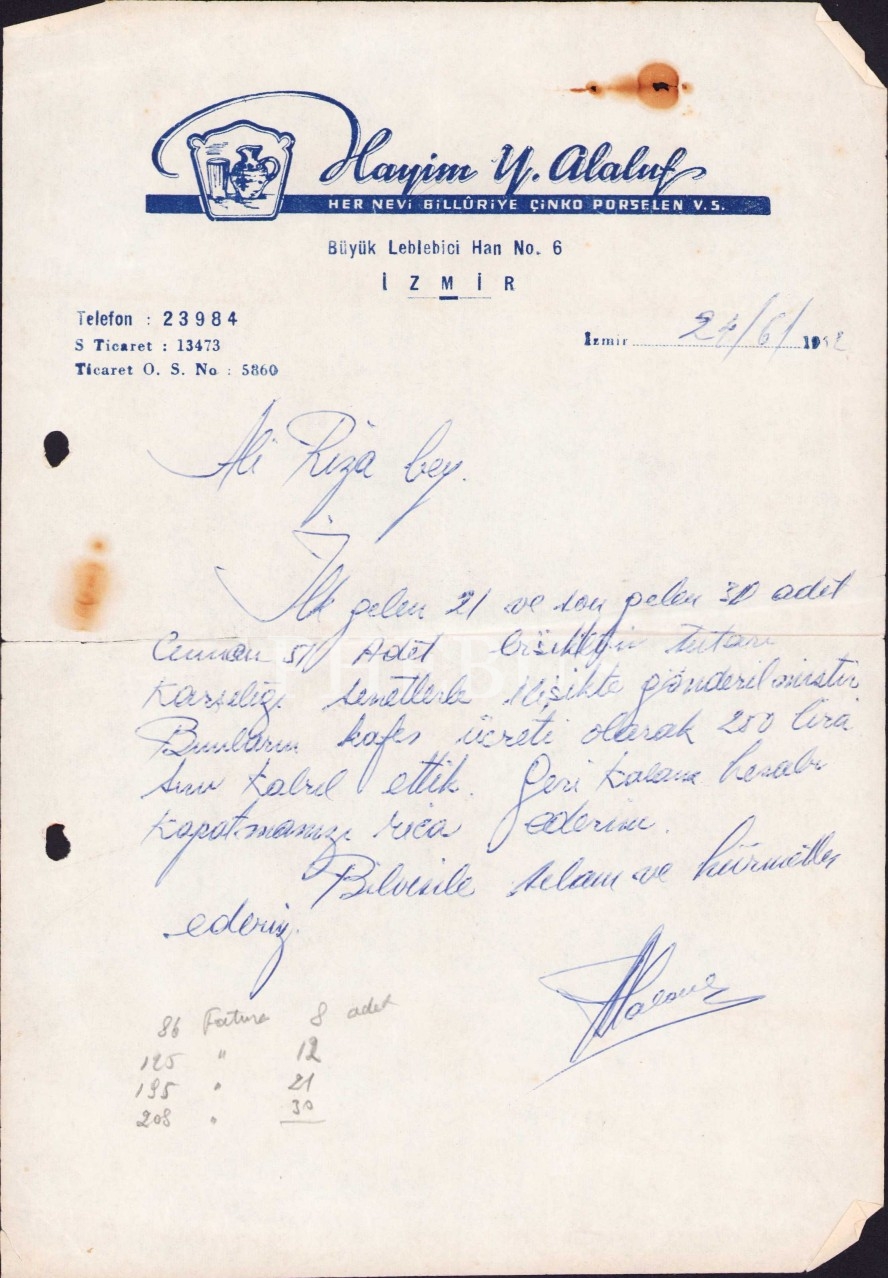 Hayim Y. Alaluf
HER NEVİ BİLLÛRİYE ÇİNKO PORSELEN V.S.
Büyük Leblebici Han No. 6
İZMİR
Telefon : 23984
S Ticaret : 13473
Ticaret O. S. No : 5860
İzmir 24/6/19
Ali Riza bey.
İlk gelen 21 ve son gelen 30 adet
51 Adet tutarı
karşılığı senetlerle ilişikte gönderilmiştir
Bunların kafes ücreti olarak 250 lira
kabul ettik. Geri kalan hesabı
kapatmanızı rica ederim.
Bilvesile selam ve hürmetler
ederiz.
86 Fatura 8 adet
125 " 12
195 " 21
208 " 30